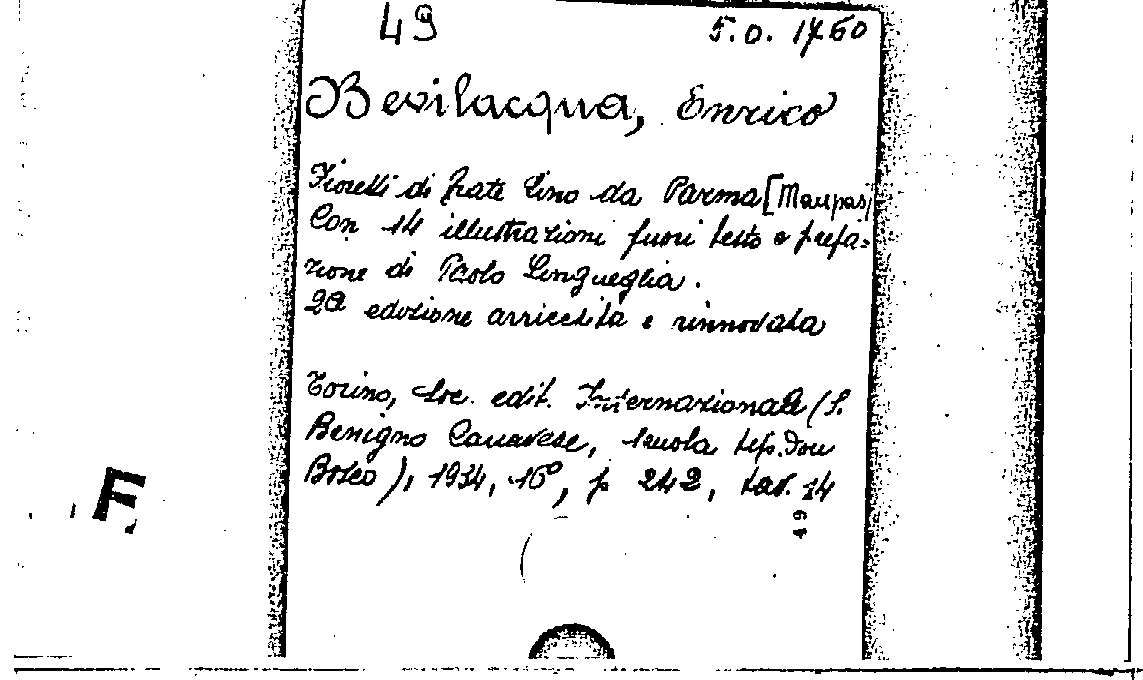 49 5.0. 1760
Bevilacqua, Enrico
Fioretti di frate Lino da Parma [Maupas]
Con 14 illustrazioni fuori testo e prefa=
zione di Paolo Lingueglia.
2a edizione arricchita e rinnovata
Torino, Soc. edit. Internazionale (S.
Benigno Canavese, Scuola tip. Don
Bosco), 1934, 16°, p 242, tav. 14
49
F